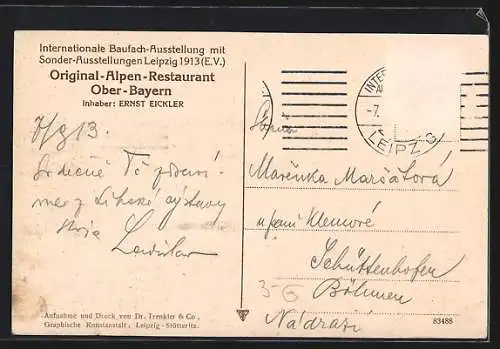 Internationale Baufach-Ausstellung mit
Sonder-Ausstellungen Leipzig 1913 (E.V.)
Original-Alpen-Restaurant
Ober-Bayern
Inhaber: ERNST EICKLER
7/8 13.
Srdečně Tě pozdravu-
jeme z Lipské výstavy
strýc Ladislav
Aufnahme und Druck von Dr. Trenkler & Co.,
Graphische Kunstanstalt, Leipzig-Stötteritz.
INTER
LEIPZIG
-7.
Slečna
Mařenka Maršátová
u paní Klemové
Schüttenhofen
Böhmen
Nádraží
3-G
83488